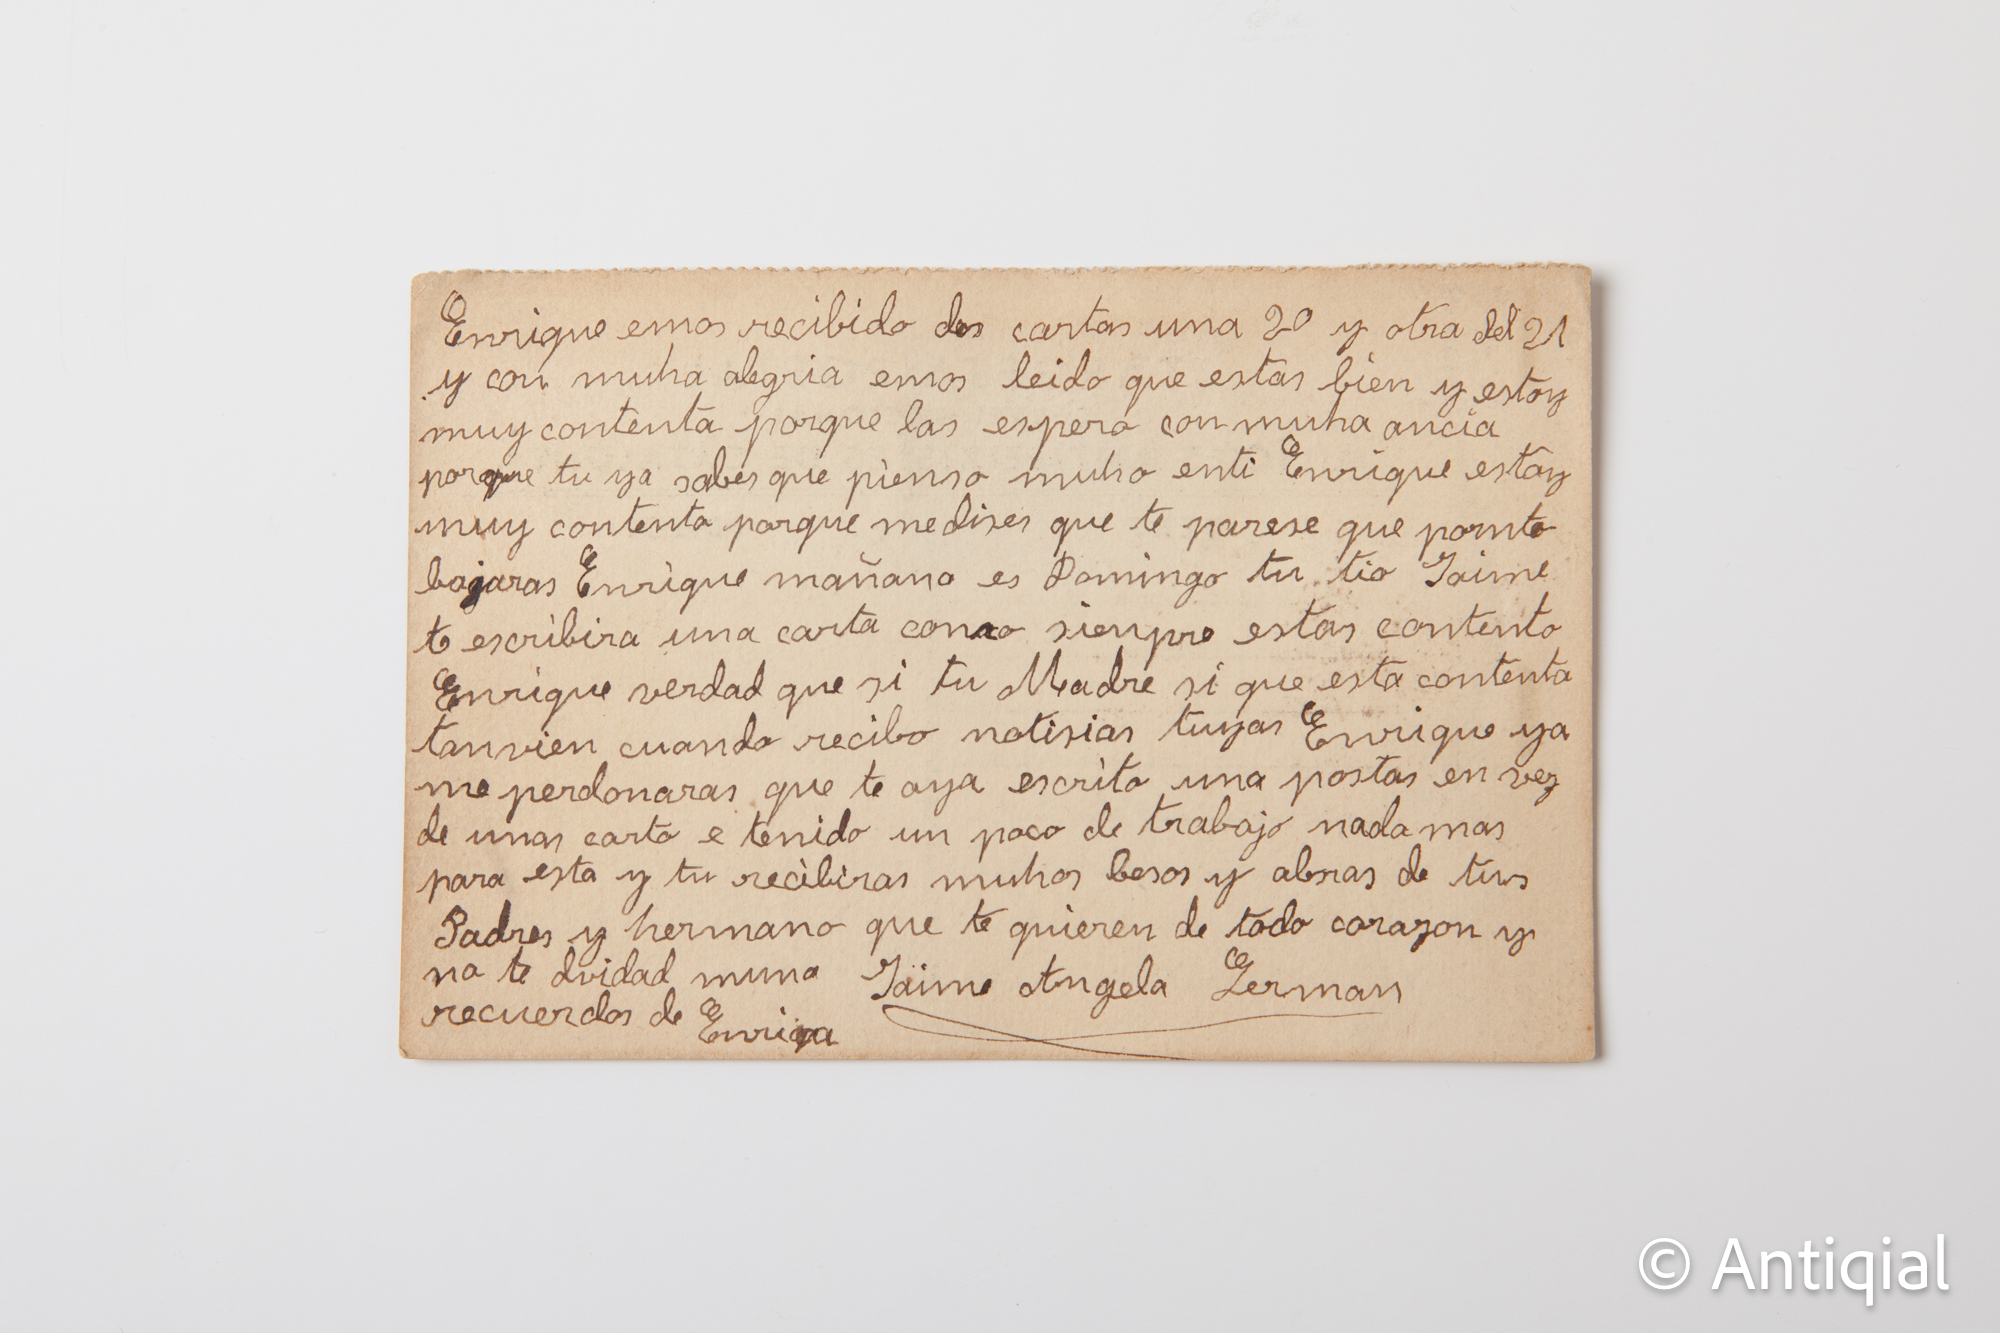 Enrique emos recibido dos cartas una 20 y otra del 21
y con muha alegria emos leido que estas bien y estoy
muy contenta porque las espero con muha ancia
porque tu ya sabes que pienso muho enti Enrique estoy
muy contenta porque me dises que te parese que pornto
bajaras Enrique mañana es Domingo tu tio Jaime
te escribira una carta como sienpre estas contento
Enrique verdad que si tu Madre si que esta contenta
tanvien cuando recibo notisias tuyas Enrique ya
me perdonaras que te aya escrito una postas en vez
de unas carta e tenido un poco de trabajo nada mas
para esta y tu recibiras muhos besos y abras de tus
Padres y hermano que te quieren de todo corazon y
no te olvidad muna Jaime Angela German
recuerdos de Enriqa
© Antiqial